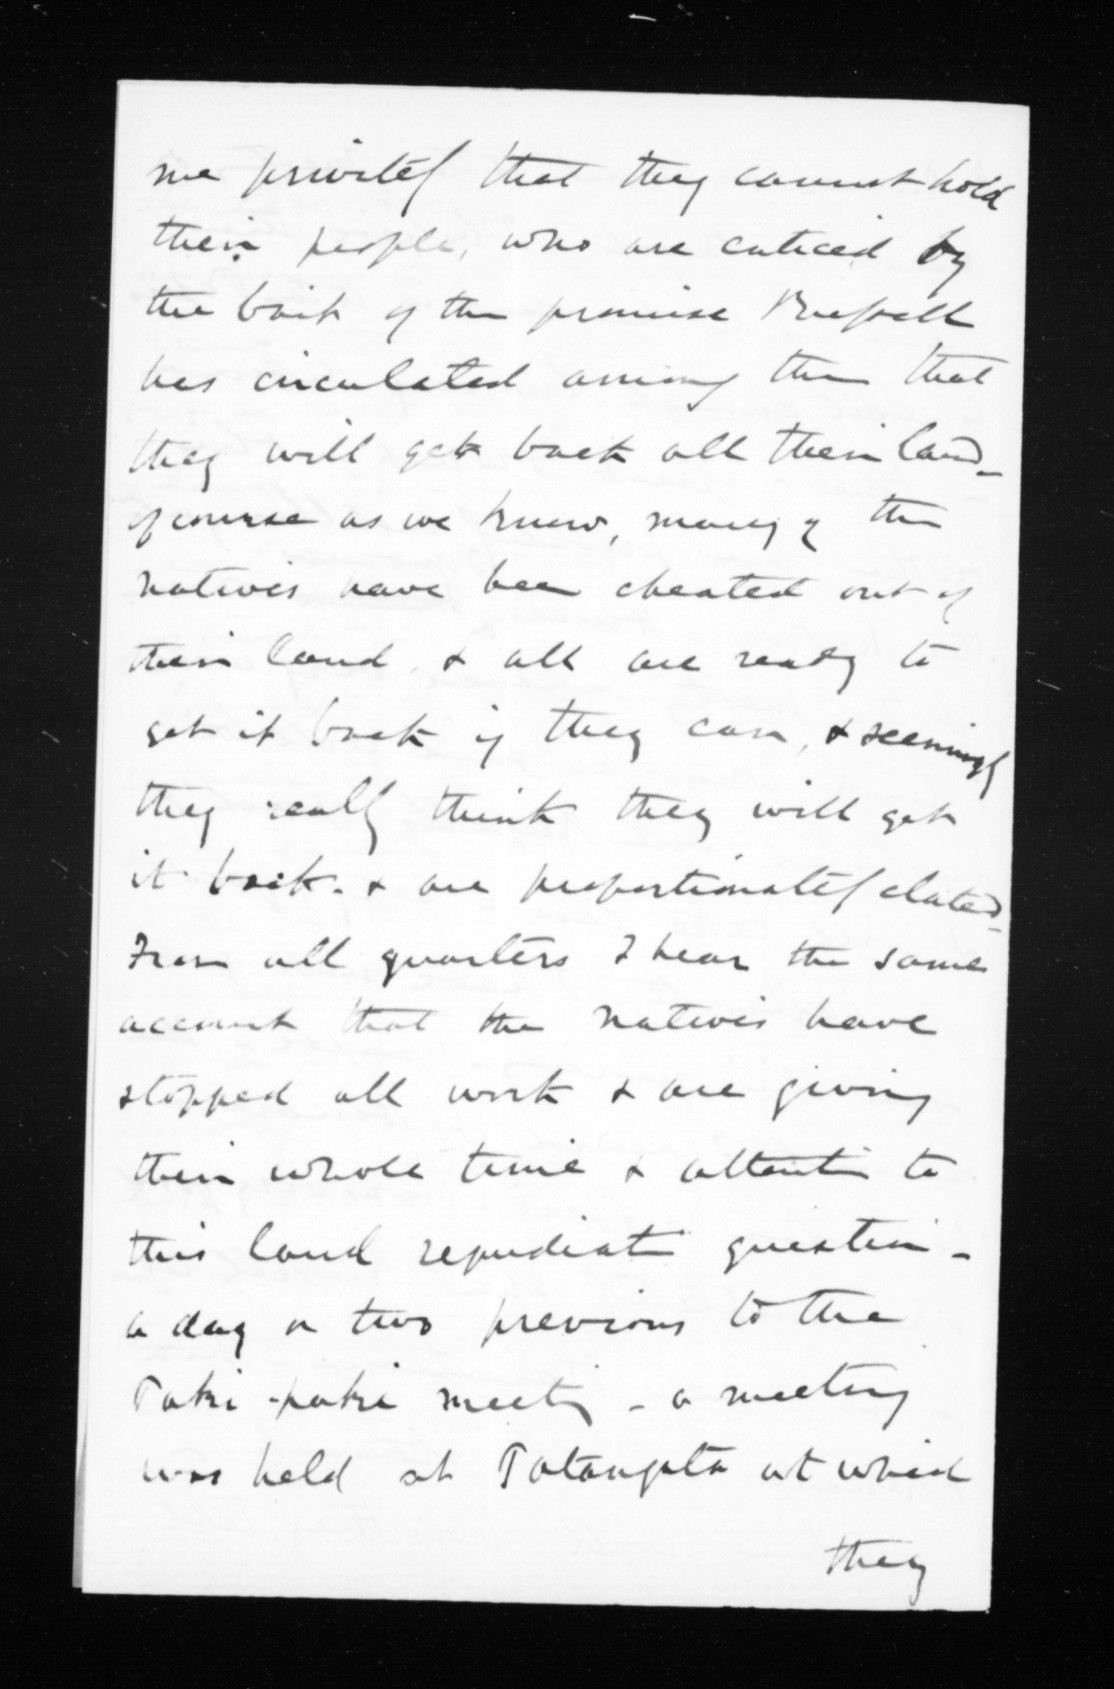 me privately that they cannot hold
their people, who are enticed by
the bait of the promise Russell
has circulated among them that
they will get back all their land -
of course as we know, many of the
natives have been cheated out of
their land & all are ready to
get it back if they can, & seemingly
they really think they will get
it back. & are proportionately elated -
From all quarters I hear the same
account that the natives have
stopped all work & are giving
their whole time & attention to
this land repudiation question -
a day or two previous to the
Paki-paki meeting - a meeting
was held at Patangata at which
they